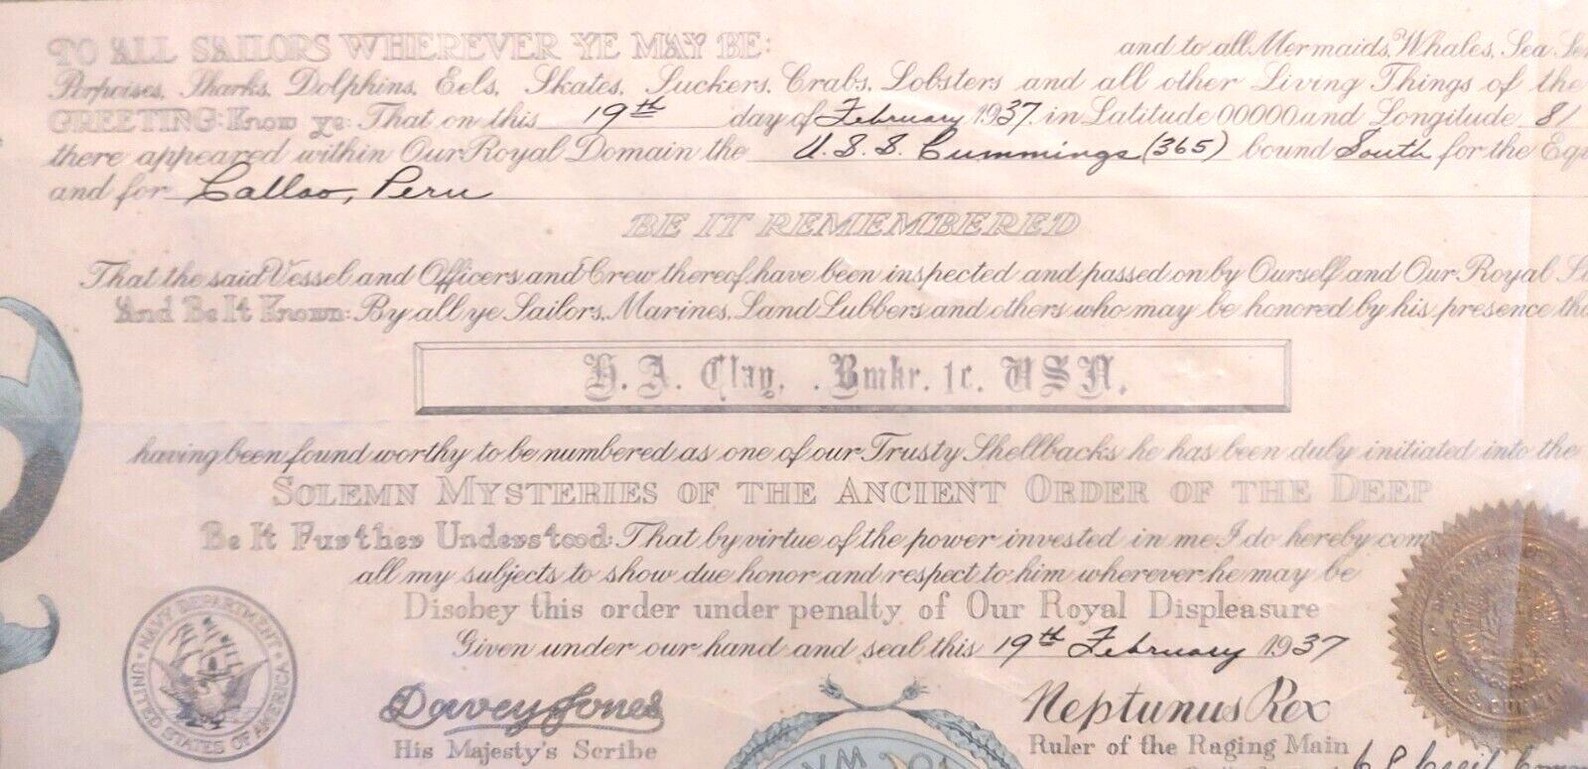 TO ALL SAILORS WHEREVER YE MAY BE: and to all Mermaids, Whales, Sea
Porpoises, Sharks, Dolphins, Eels, Skates, Suckers, Crabs, Lobsters and all other Living Things of the
GREETING: Know ye: That on this 19th day of February 1937 in Latitude 00000 and Longitude 81
there appeared within Our Royal Domain the U.S.S. Cummings (365) bound South for the
and for Callao, Peru
BE IT REMEMBERED
That the said Vessel and Officers and Crew thereof have been inspected and passed on by Ourself and Our Royal
And Be It Known: By all ye Sailors, Marines, Land Lubbers and others who may be honored by his presence
H. A. Clay, . Bmkr. 1c. USN.
having been found worthy to be numbered as one of our Trusty Shellbacks he has been duly initiated into the
SOLEMN MYSTERIES OF THE ANCIENT ORDER OF THE DEEP
Be It Further Understood: That by virtue of the power invested in me I do hereby
all my subjects to show due honor and respect to him wherever he may be
Disobey this order under penalty of Our Royal Displeasure
Given under our hand and seal this 19th February 1937
NAVY DEPARTMENT
UNITED STATES OF AMERICA
Davey Jones
His Majesty's Scribe
Neptunus Rex
Ruler of the Raging Main